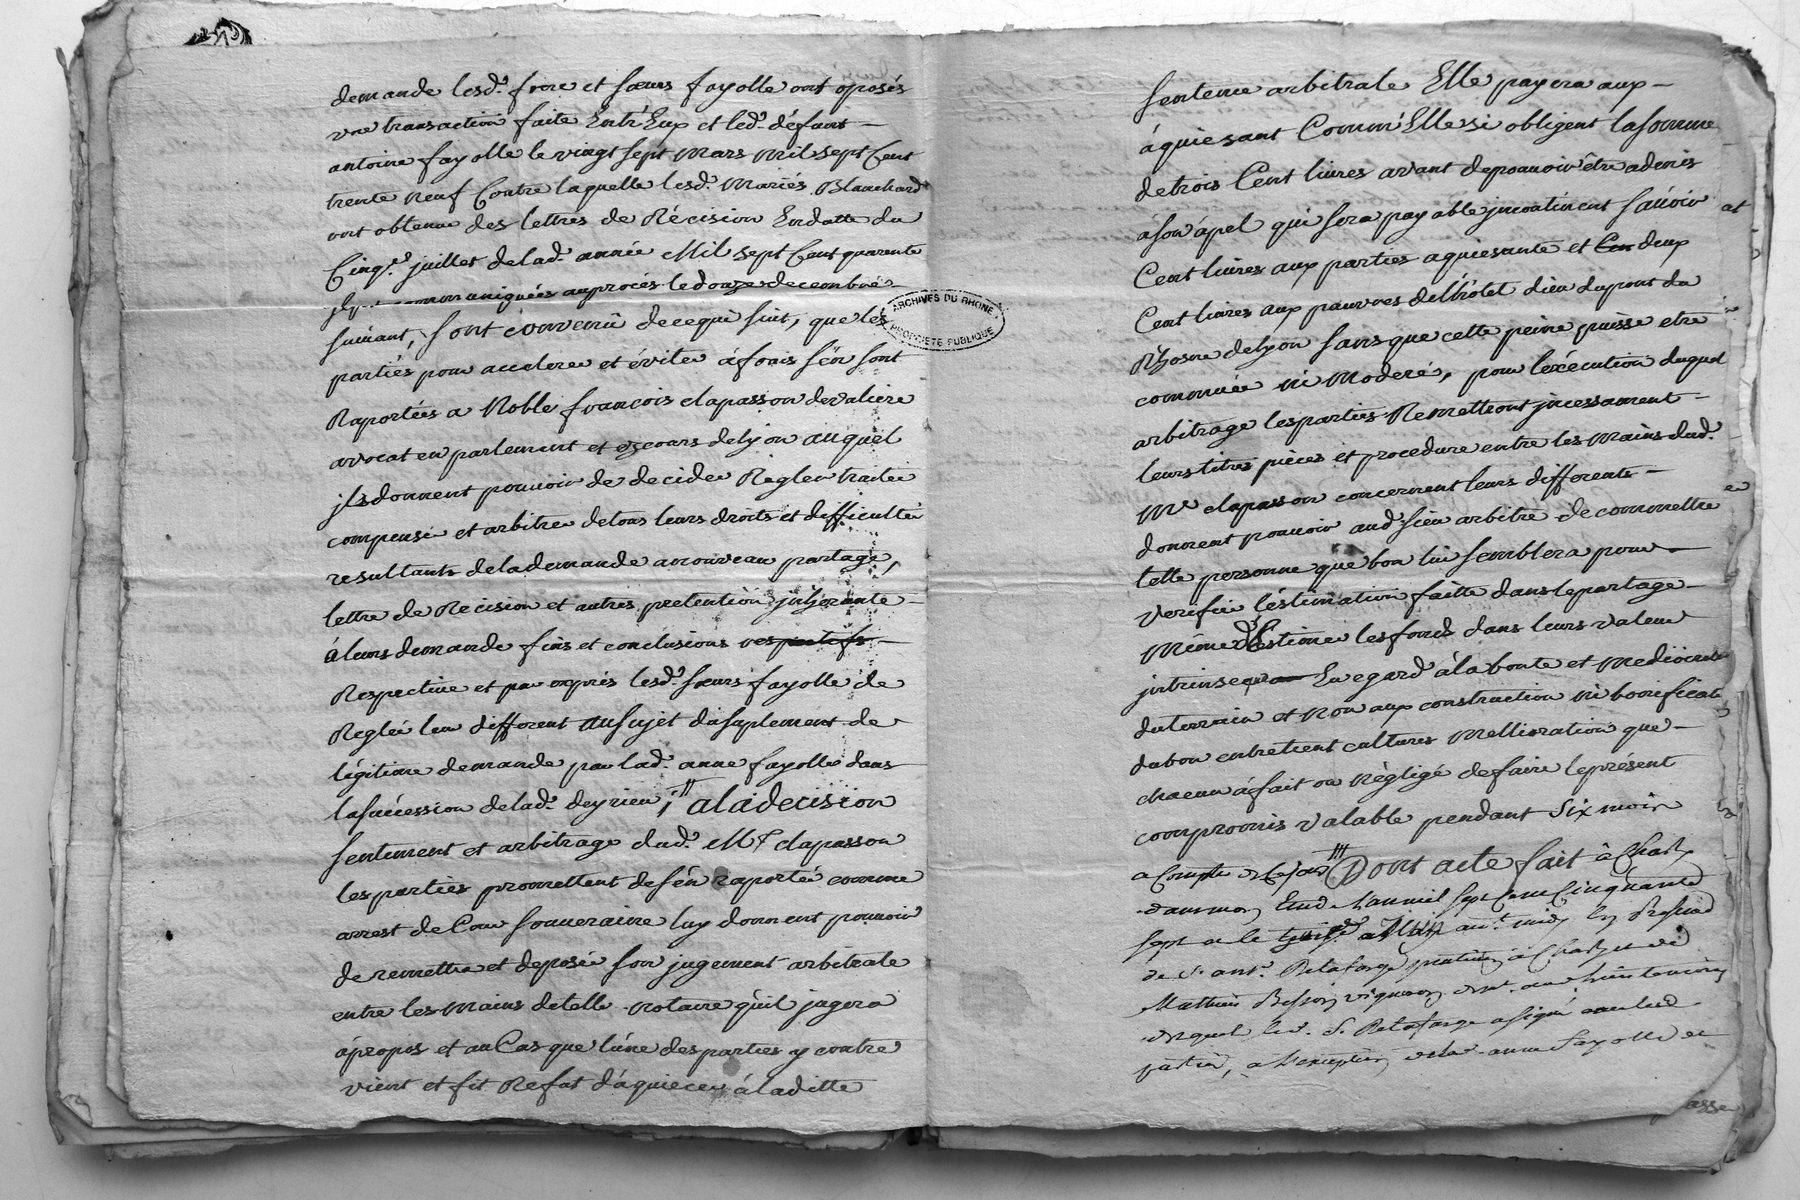 demande lesd. frere et sœurs fayolle ont oposés
vne transaction faite Entr'Eux et led. défunt
antoine fayolle le vingt sept Mars Mil sept Cent
trente neuf Contre laquelle lesd. Mariés Blanchard
ont obtenu des lettres de Récision En datte du
Cinq juillet de lad. année Mil sept Cent quarente
communiquées au procés le douze decembre
suivant, sont convenu de ce qui suit, que les
partiés pour accelerer et éviter á frais s'en sont
Raportées a Noble françois clapasson de valiere
avocat en parlement et ez cours de lyon auquel
jls donnent pouvoir de decider Régler traiter
compenser et arbitrer de tous leurs droits et difficulté
resultants de la demande a nouveau partage,
lettre de Recision et autres pretention
á leurs demande fins et conclusions respectifs
Respective et par exprés lesd. sœurs fayolle de
Reglér leur different au sujet du suplement de
légitime demande par lad. anne fayolle dans
la succession de lad. deyrieu, a la decision
sentiment et arbitrage dud. Me clapasson
les parties promettent de s'én raporter comme
arrest de Cour souveraine luy donnent pouvoir
de remettre et deposér son jugement arbitrale
entre les Mains de telle Notaire qu'il jugera
ápropos et au Cas que l'úne des parties y contre
vient et fit Refat d'áquiecer á la ditte
ARCHIVES DU RHONE
PROPRIETE PUBLIQUE
sentence arbitrale Elle payera aux
áquiesant Comm'Elle si obligent la somme
de trois Cent livres avant de pouvoir être admis
á son ápel qui sera payable jncontinent sávoir
Cent livres aux parties aquiesante et Cen deux
Cent livres aux pauvres de l'hótel dieu du pont du
Rhosne de lyon sans que cette peine puisse etre
commuée ni Moderé, pour l'éxécution duquel
arbitrage les parties Remettront jncessament
leurs titres pièces et procedure entre les Mains dud.
Me clapasson concernent leurs differents
donnent pouvoir aud. sieur arbitre de commettre
telle personne que bon lui semblera pour
verifier l'éstimation faitte dans le partage
Même d'Estimer les fonds dans leurs valeur
jntrinseque En egard á la bonte et mediocrité
du terrain et Non aux construction ni bonificati
du bon entretient cultures Mellioration que
chacun á fait ou négligé de faire le présent
compromis valable pendant six mois
a Compter de ce jour Dont acte fait á
Lan mil sept Cent Cinquante
sept et le midy En presence
de S. ant. á
Mathieu
S. a signé avec les
parties, a l'exception de lad. anne fayolle et